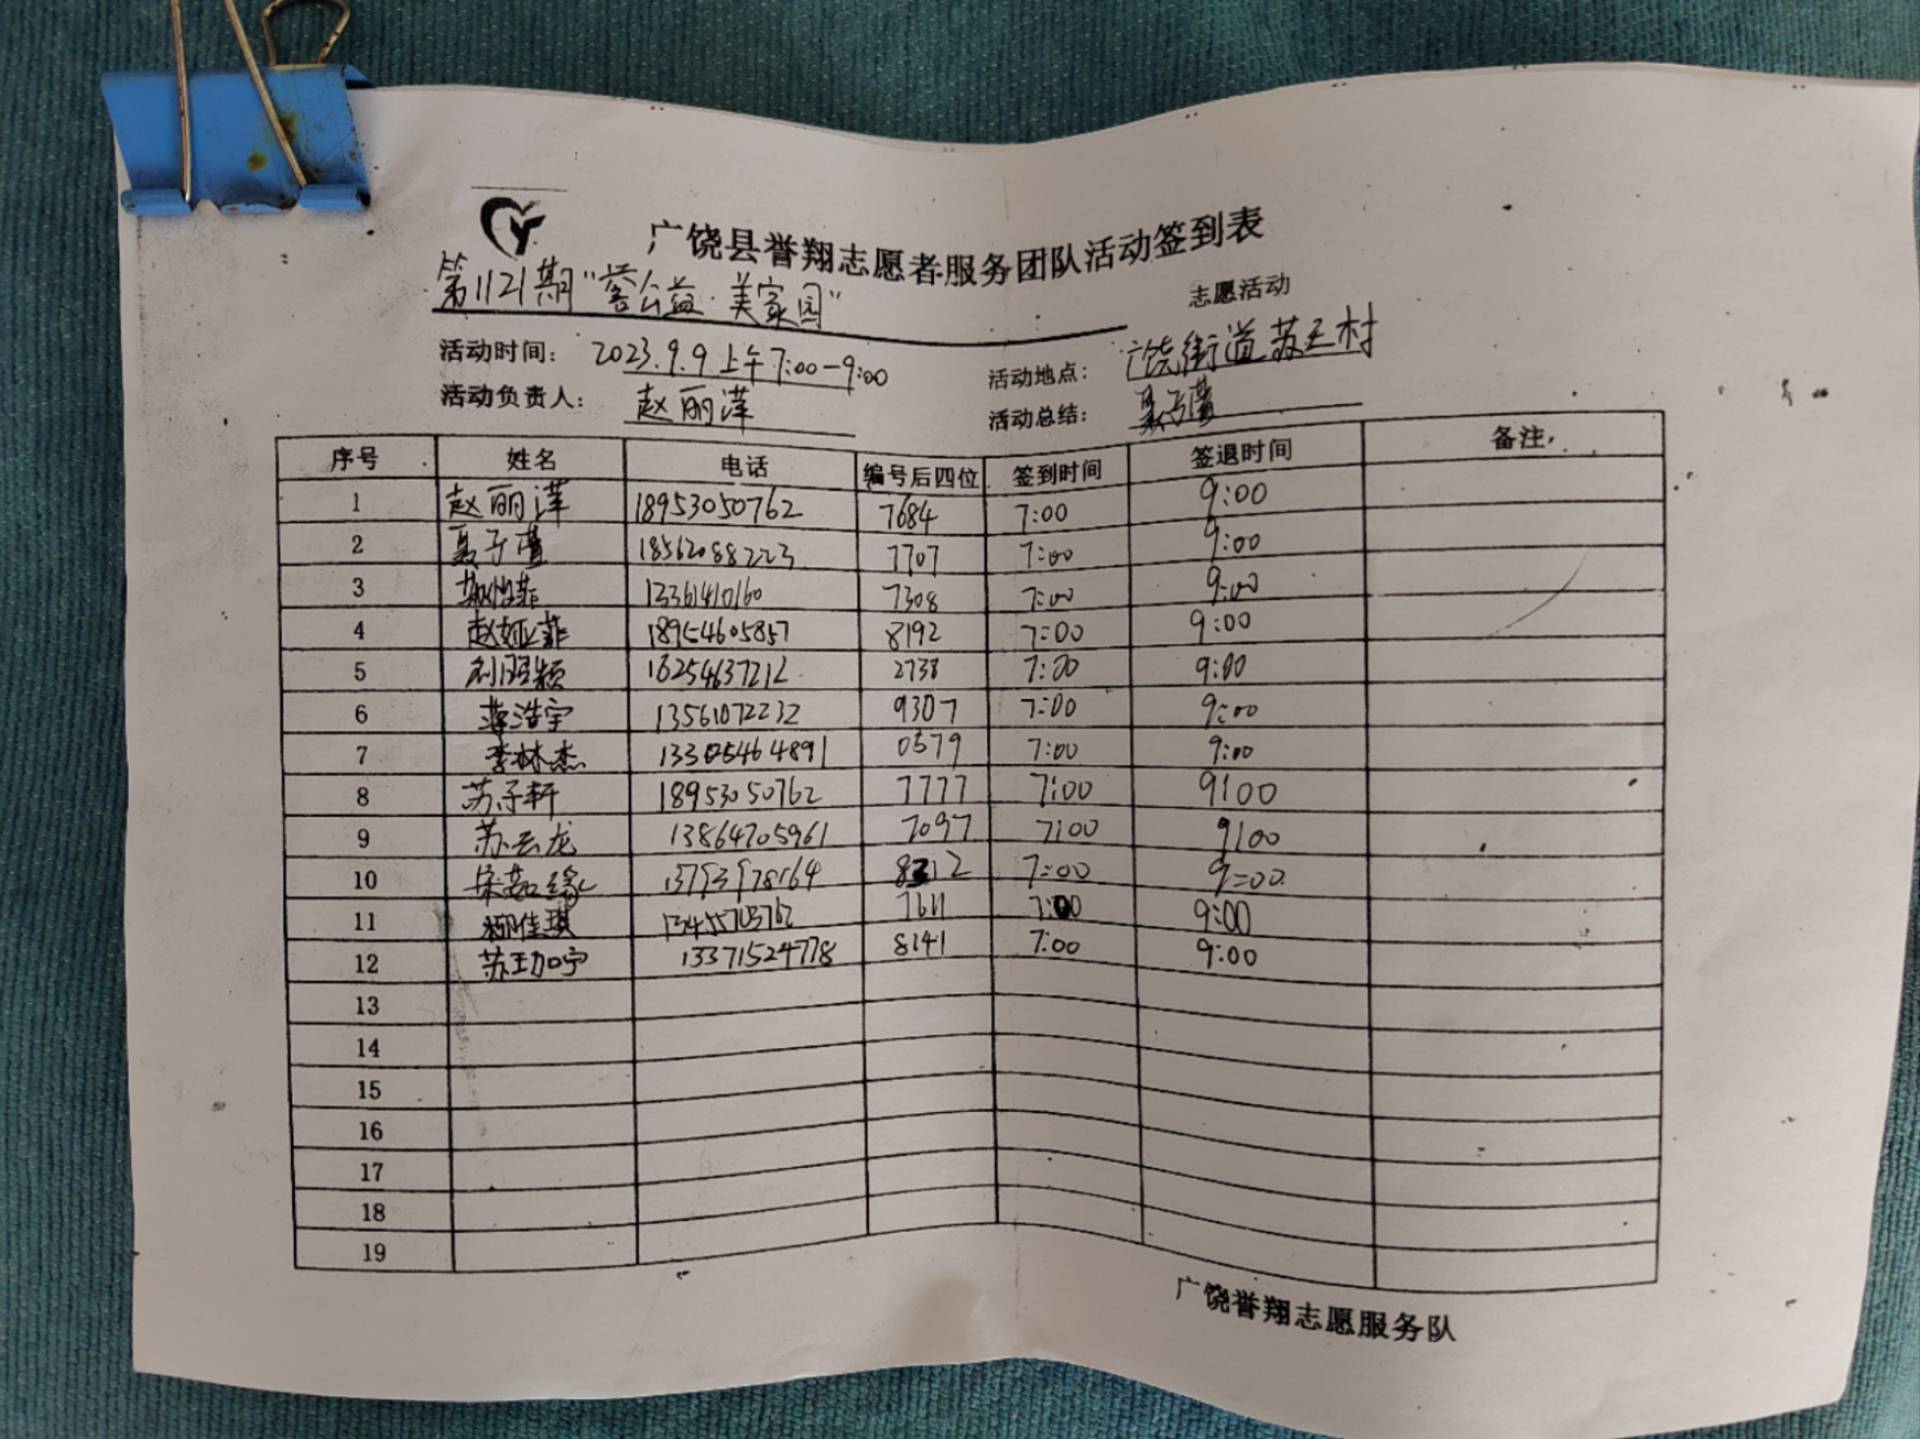 广饶县誉翔志愿者服务团队活动签到表
第1121期"蓉公益·美家园" 志愿活动
活动时间: 2023.9.9上午7:00-9:00 活动地点: 广饶街道苏王村
活动负责人: 赵丽萍 活动总结: 聂子萱
序号 姓名 电话 编号后四位 签到时间 签退时间 备注
1 赵丽萍 18953050762 7684 7:00 9:00
2 聂子萱 18562088223 7707 7:00 9:00
3 13361410160 7308 7:00 9:00
4 赵娅菲 18954605857 8192 7:00 9:00
5 16254637212 2738 7:00 9:00
6 蒋浩宇 13561072232 9307 7:00 9:00
7 李林杰 0579 7:00 9:00
8 苏子轩 18953050762 7777 7:00 9:00
9 苏云龙 13864705961 7097 7:00 9:00
10 宋茹缘 13793978164 7:00 9:00
11 柳佳琪 7611 7:00 9:00
12 苏珈宁 13371524778 8141 7:00 9:00
13
14
15
16
17
18
19
广饶誉翔志愿服务队